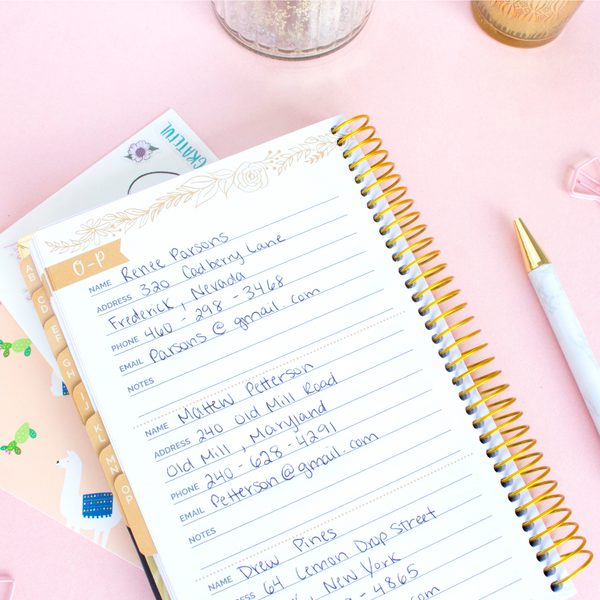 GRATEFUL
O-P
NAME Renee Parsons
ADDRESS 320 Cadberry Lane
Frederick, Nevada
PHONE 460-298-3468
EMAIL Parsons@gmail.com
NOTES
NAME Mattew Petterson
ADDRESS 240 Old Mill Road
Old Mill, Maryland
PHONE 240-628-4291
EMAIL Petterson@gmail.com
NOTES
NAME Drew Pines
ADDRESS 64 Lemon Drop Street
, New York
-4865
.com
AB
CD
EF
GH
IJ
KL
MN
OP